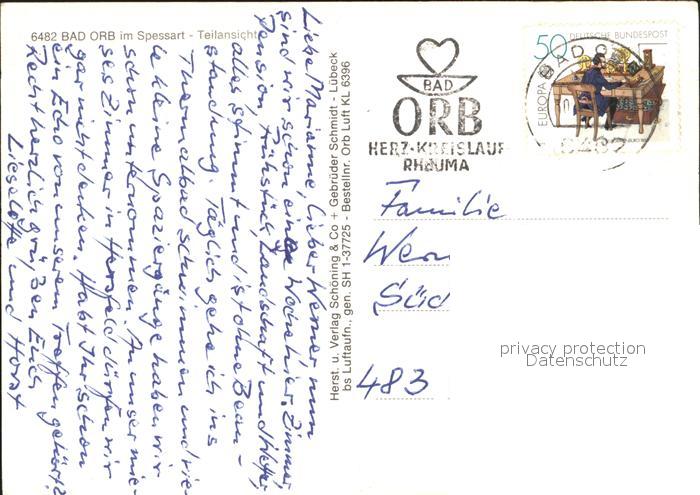 6482 BAD ORB im Spessart - Teilansicht
Liebe Marianne, lieber Werner nun
sind wir schon eine Woche hier. Zimmer,
Pension, Frühstück, Landschaft und Wetter,
alles stimmt und ist ohne Bean-
standung. Täglich gehe ich ins
Thermalbad schwimmen und vie-
le kleine Spaziergänge haben wir
schon unternommen. An unser mie-
ses Zimmer in Hersfeld dürfen wir
gar nicht denken. Habt Ihr schon
ein Echo von unserem Treffen gehört?
Recht herzlich grüßen Euch
Lieselotte und Horst
Herst. u. Verlag Schöning & Co + Gebrüder Schmidt - Lübeck
bs Luftaufn., gen. SH 1-37725 - Bestellnr. Orb Luft KL 6396
BAD
ORB
HERZ-KREISLAUF
RHEUMA
50 DEUTSCHE BUNDESPOST
EUROPA
BAD
6482
Familie
Wer
Süd
483
privacy protection
Datenschutz